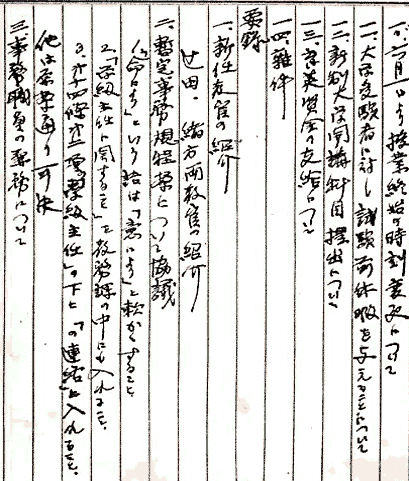 一〇、六月一日より授業終始の時刻変更について
一一、大学受験者に対し試験前休暇を与えることについて
一二、新制大学開講科目提出について
一三、育英奨学金の支給について
一四、雑件
要録
一、新任教官の紹介
辻田、緒方両教官の紹介
二、暫定事務規程案について協議
1、「命により」という語は「意により」と軟かくすること
2、「学級主任に関すること」を教務課の中にも入れること、
3、第十四條第二項「学級主任」の下に「の連絡」と入れること、
他は原案通り可決
三、事務職員の服務について